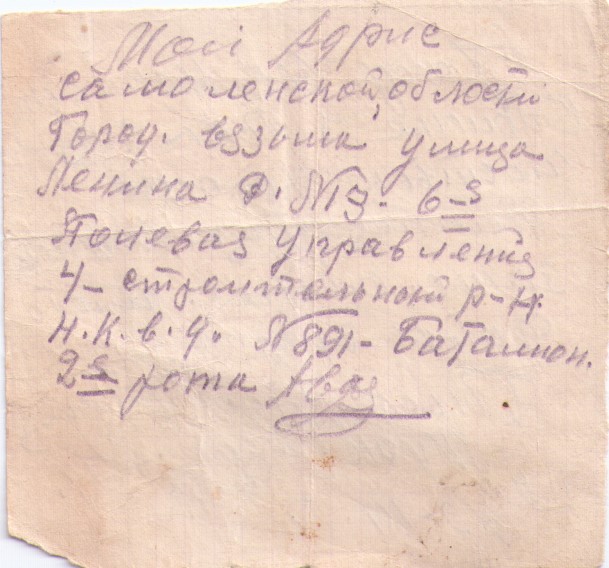 Мой Адрис
самоленской области
Город. вязьма улица
Ленина д. №13- 6-я
Полевая Управления
4- строительний р-н.
Н.К.в.д. №891- Баталион.
2-я рота